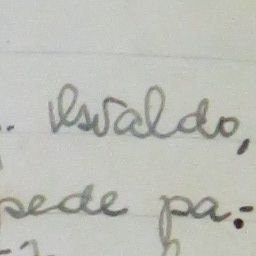 .. Osvaldo,
pede pa:-